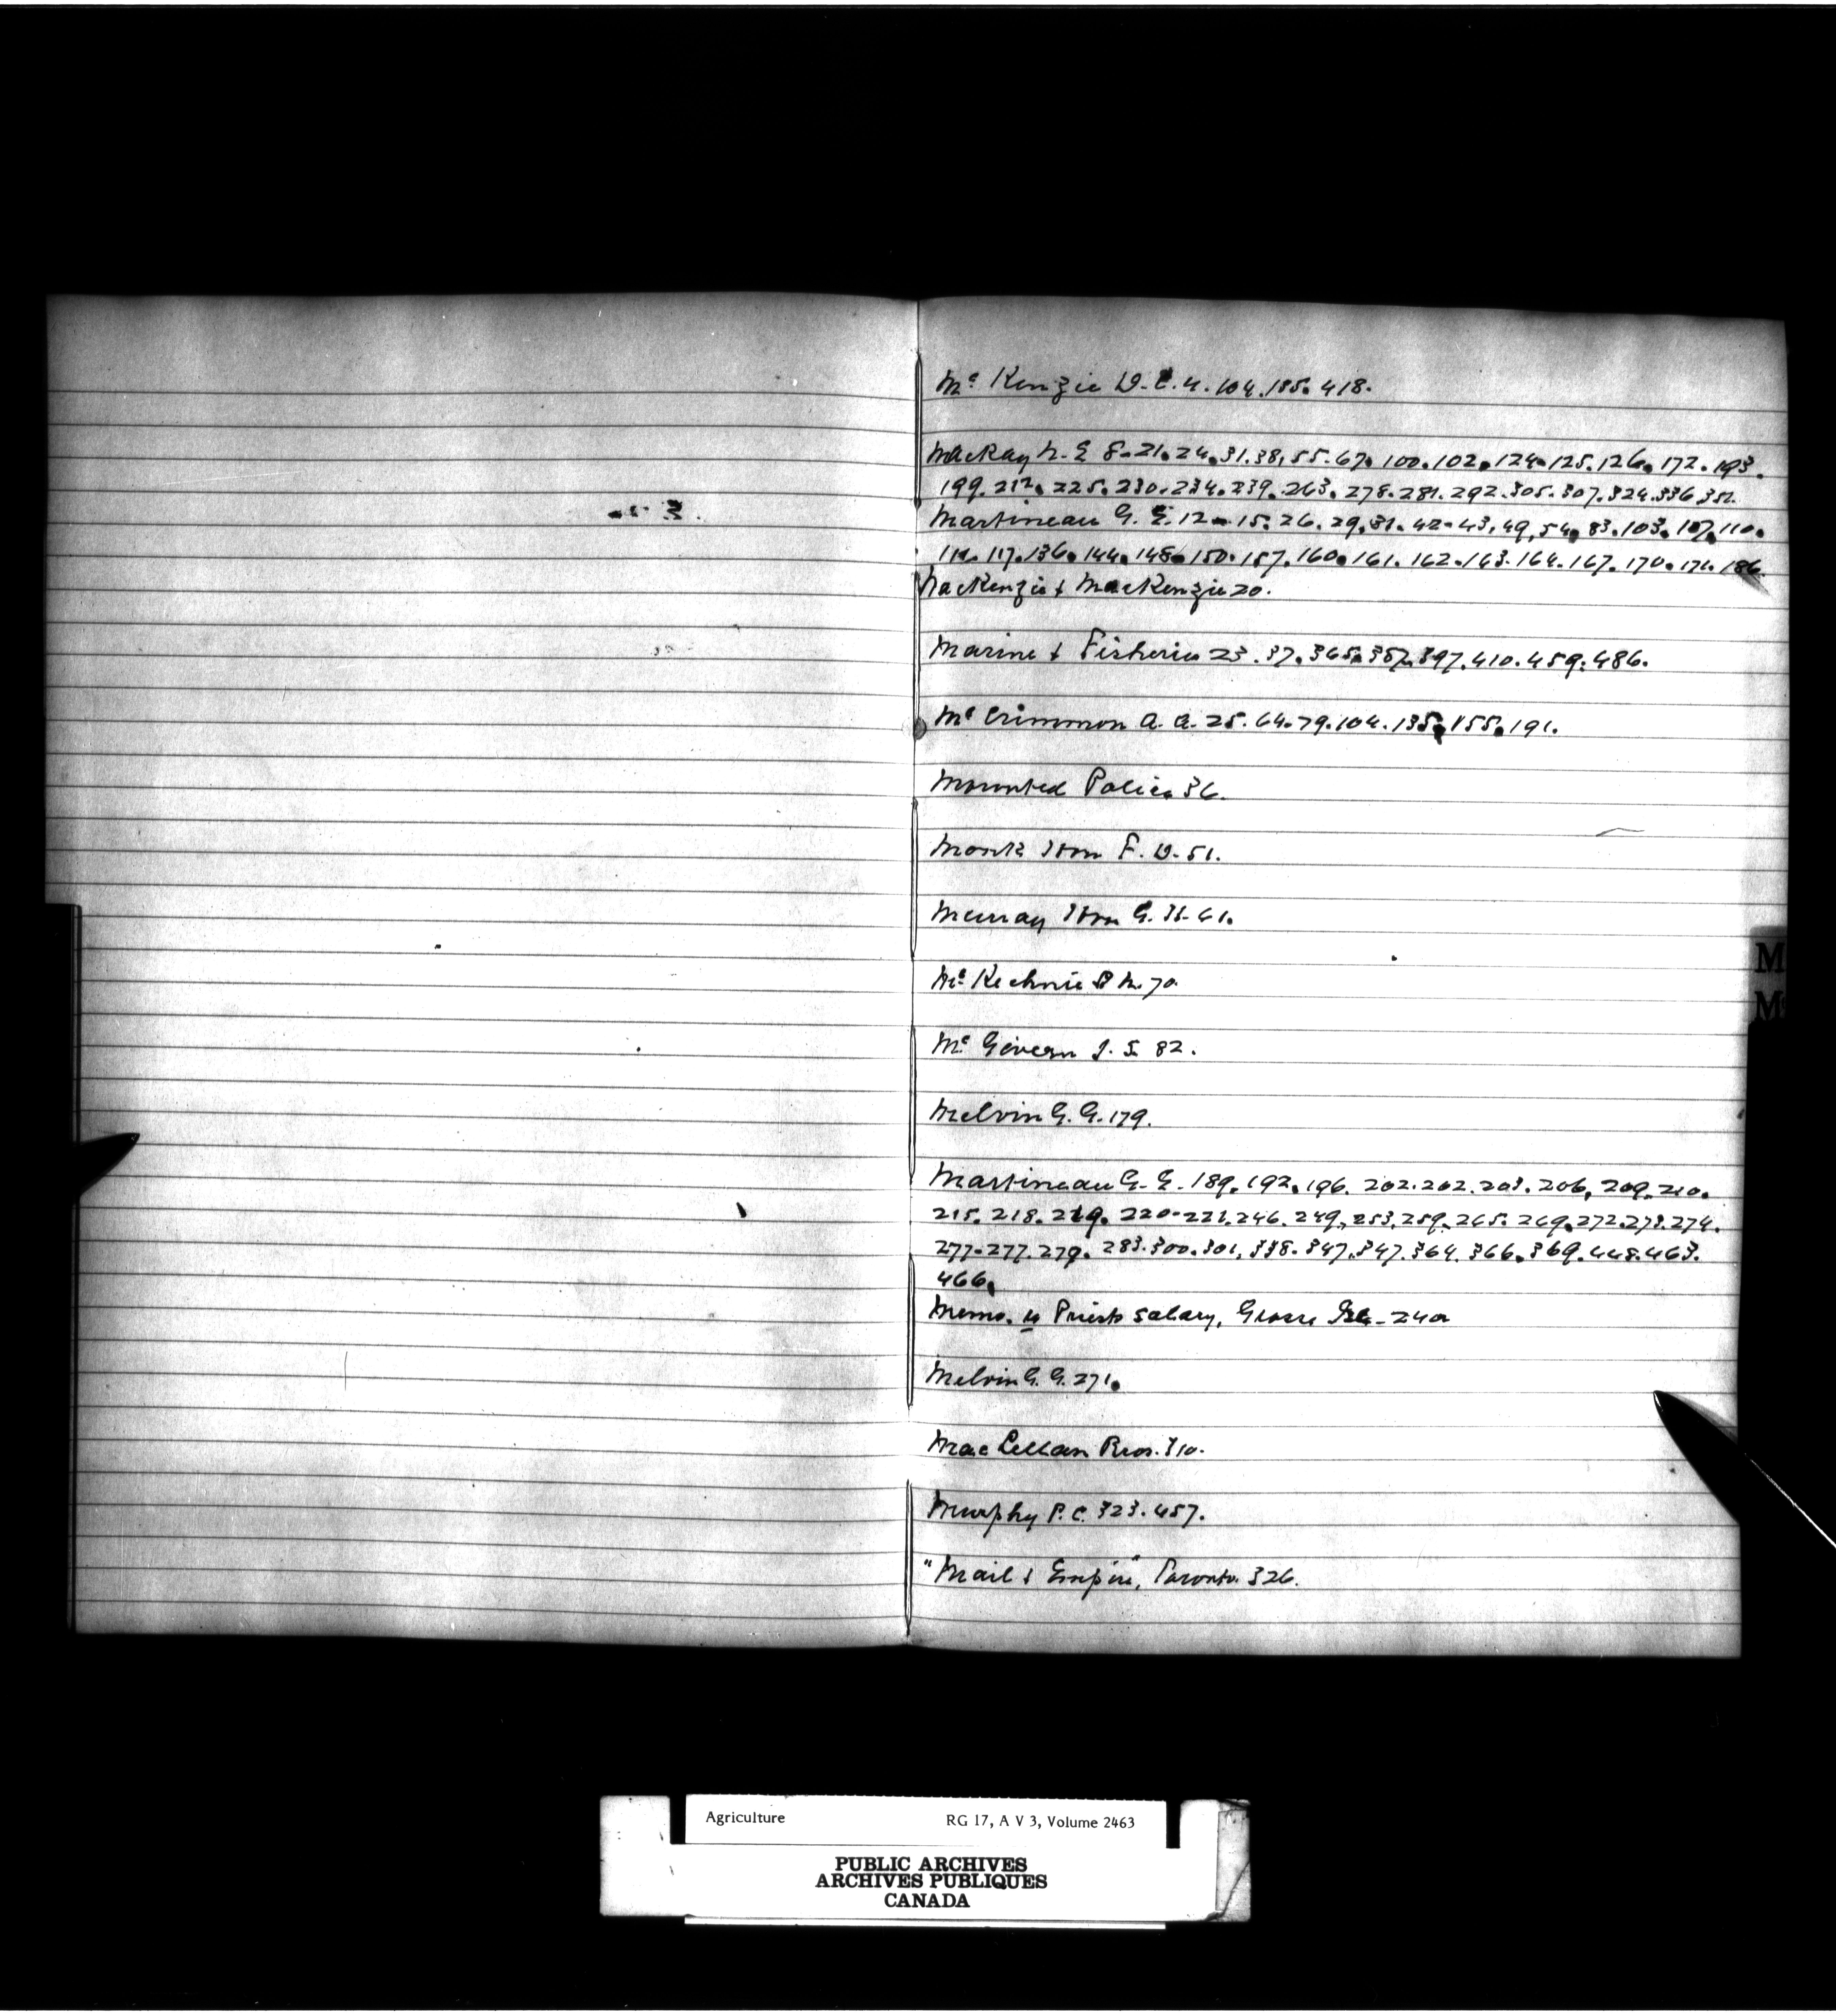 Mc Kenzie D. C. 4. 104. 185. 418.
MacKay N. E 8. 21. 24. 31. 38, 55. 67. 100. 102. 124. 125. 126. 172. 193.
199. 212. 225. 230. 234. 239. 263. 278. 281. 292. 305. 307. 324. 336 351.
Martineau G. E. 12. 15. 26. 29, 31. 42. 43, 49, 54, 83. 103. 107. 110.
111. 117. 136. 144. 148. 150. 157. 160. 161. 162. 163. 164. 167. 170. 171. 186.
MacKenzie & MacKenzie 20.
Marine & Fisheries 23. 37. 365. 387. 397. 410. 459. 486.
Mc Crimmon A. A. 25. 64. 79. 104. 135. 155. 191.
Mounted Police 36.
Monk Hon F. D. 51.
Murray Hon G. H. 61.
Mc Kechnie M. 70
Mc Givern J. S. 82.
Melvin G. G. 179.
Martineau G. E. 189. 192. 196. 202. 202. 203. 206, 209. 210.
215. 218. 219. 220. 221. 246. 249. 253. 259. 265. 269. 272. 273. 274.
277. 277. 279. 283. 300. 301, 338. 347. 347. 364. 366. 369. 448. 463.
466.
Memo. re Priests salary, Grosse Isle - 240
Melvin G. G. 271.
MacLellan Bros. 310.
Murphy P. C. 323. 457.
"Mail & Empire", Toronto. 326.
M
M
Agriculture RG 17, A V 3, Volume 2463
PUBLIC ARCHIVES
ARCHIVES PUBLIQUES
CANADA